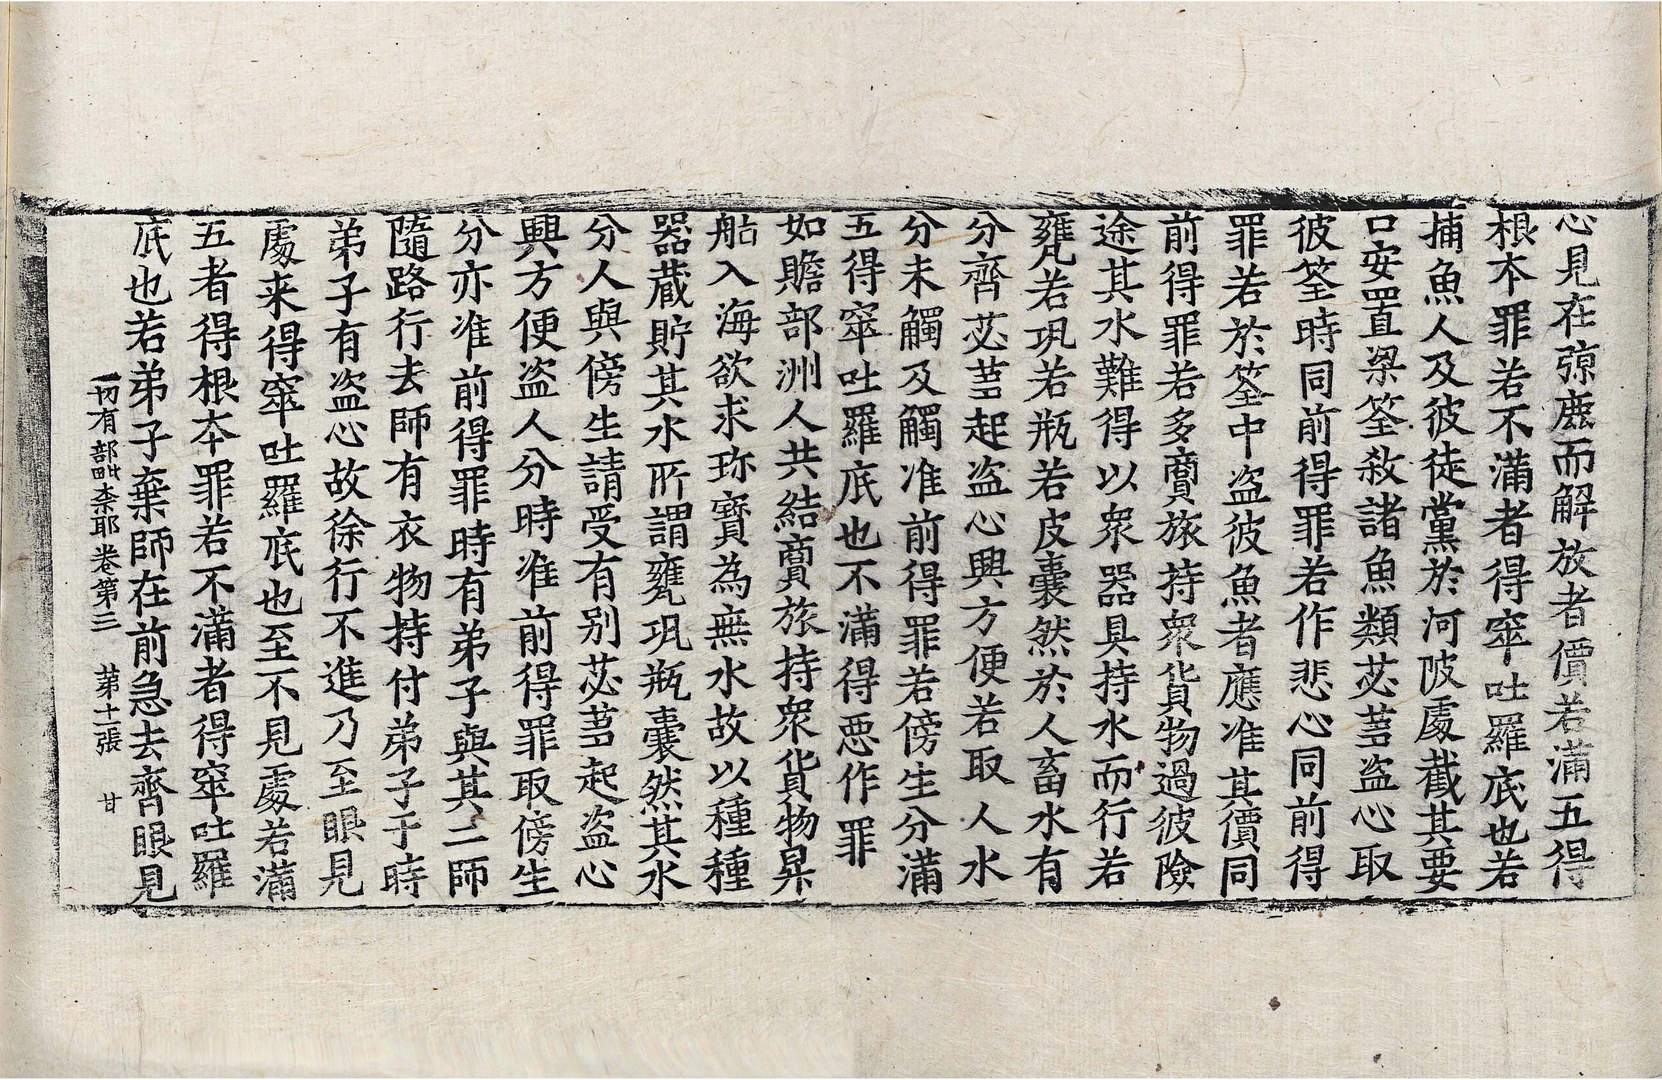 心見在弶鹿而解放者價若滿五得
根本罪若不滿者得窣吐羅底也若
捕魚人及彼徒黨於河陂處截其要
口安置梁筌殺諸魚類苾蒭盜心取
彼筌時同前得罪若作悲心同前得
罪若於筌中盜彼魚者應准其價同
前得罪若多賣旅持衆貨物過彼險
途其水難得以衆器具持水而行若
甕若瓨若瓶若皮囊然於人畜水有
分齊苾蒭起盜心興方便若取人水
分未觸及觸准前得罪若傍生分滿
五得窣吐羅底也不滿得惡作罪
如贍部洲人共結賣旅持衆貨物昇
舩入海欲求珎寶為無水故以種種
器藏貯其水所謂甕瓨瓶囊然其水
分人與傍生請受有别苾蒭起盜心
興方便盜人分時准前得罪取傍生
分亦准前得罪時有弟子與其二師
隨路行去師有衣物持付弟子于時
弟子有盜心故徐行不進乃至眼見
處来得窣吐羅底也至不見處若滿
五者得根本罪若不滿者得窣吐羅
底也若弟子棄師在前急去齊眼見
一切有部毗奈耶卷第三 第十一張 甘